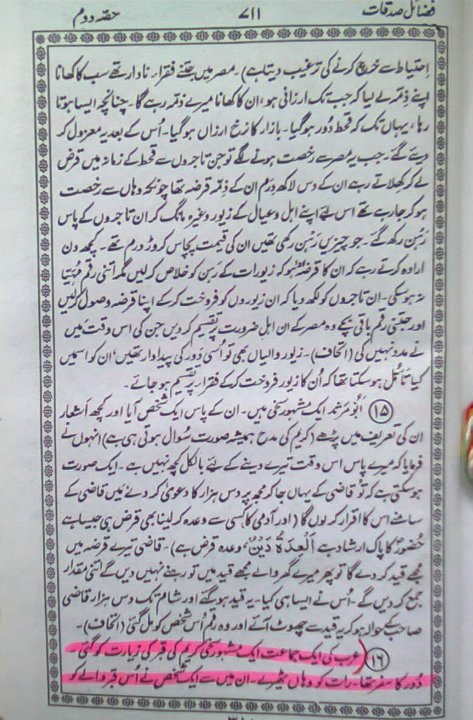 فضائل صدقات ۷۱۱ حصہ دوم
احتیاط سے خرچ کرنے کی ترغیب دیتا ہے)۔ مصر میں جتنے فقراء نادار تھے سب کا کھانا
اپنے ذمہ لے لیا کہ جب تک ارزانی ہو، ان کا کھانا میرے ذمہ رہے گا۔ چنانچہ ایسا ہوتا
رہا، یہاں تک کہ قحط دُور ہو گیا۔ بازار کا نرخ ارزاں ہو گیا۔ اُس کے بعد یہ معزول کر
دیئے گئے۔ جب یہ مصر سے رخصت ہونے لگے تو جن تاجروں سے قحط کے زمانہ میں قرض
لے کر کھلاتے رہے ان کے دس لاکھ درم ان کے ذمہ قرضہ تھا چونکہ وہاں سے رخصت
ہو کر جا رہے تھے اس لیے اپنے اہل و عیال کے زیور وغیرہ مانگ کر ان تاجروں کے پاس
رہن رکھ گئے۔ جو چیزیں رہن رکھی تھیں ان کی قیمت پچاس کروڑ درم تھے۔ کچھ دن
ارادہ کرتے رہے کہ ان کا قرضہ ادا ہو کہ زیورات کے رہن کو خلاص کر لیں مگر اتنی رقم مہیا
نہ ہو سکی۔ ان تاجروں کو لکھ دیا کہ ان زیوروں کو فروخت کر کے اپنا قرضہ وصول کر لیں
اور جتنی رقم باقی بچے وہ مصر کے ان اہل ضرورت پر تقسیم کر دیں جن کی اس وقت میں
نے مدد نہیں کی (اتحاف)۔ زیور والیاں بھی تو اُسی دَور کی پیداوار تھیں ان کو اسمیں
کیا تأمل ہو سکتا تھا کہ اُن کا زیور فروخت کر کے فقراء پر تقسیم ہو جائے۔
(۱۵) ابو مرثد ایک مشہور سخی ہیں۔ ان کے پاس ایک شخص آیا اور کچھ اشعار
ان کی تعریف میں پڑھے (کریم کی مدح ہمیشہ صورتِ سوال ہوتی ہی ہے) انہوں نے
فرمایا کہ میرے پاس اس وقت تیرے دینے کے لیے بالکل کچھ نہیں ہے۔ ایک صورت
ہو سکتی ہے کہ تُو قاضی کے یہاں جا کر مجھ پر دس ہزار کا دعویٰ کر دے، میں قاضی کے
سامنے اس کا اقرار کر لوں گا (اور آدمی کا کسی سے وعدہ کر لینا بھی قرض ہی جیسا ہے
حضورؐ کا پاک ارشاد ہے اَلْعِدَةُ دَیْنٌ، وعدہ قرض ہے)۔ قاضی تیرے قرضہ میں
مجھے قید کر دے گا تو پھر میرے گھر والے مجھے قید میں تو رہنے نہیں دیں گے اتنی مقدار
جمع کر دیں گے۔ اُس نے ایسا ہی کیا۔ یہ قید ہو گئے اور شام تک دس ہزار قاضی
صاحب کے حوالہ ہو کر یہ قید سے چھوٹ آئے اور وہ رقم اُس شخص کو مل گئی (اتحاف)۔
(۱۶) عرب کی ایک جماعت ایک مشہور سخی کریم کی قبر کی زیارت کو گئی
دُور کا سفر تھا۔ رات کو وہاں ٹھیرے۔ ان میں سے ایک شخص نے اُس قبر والے کو